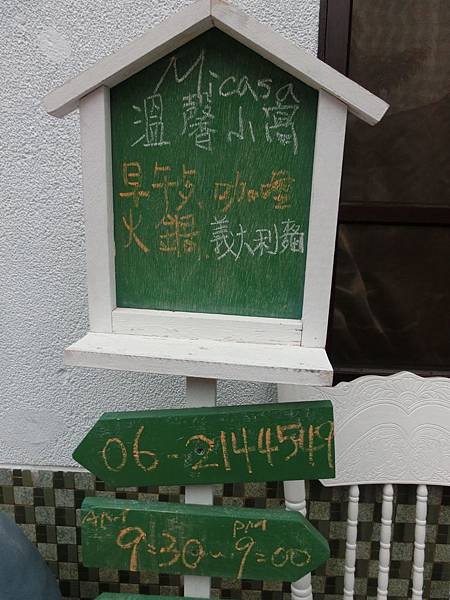 Micasa
溫馨小窩
早午夕、咖啡
火鍋、義大利麵
06-2144549
AM PM
9:30~9:00